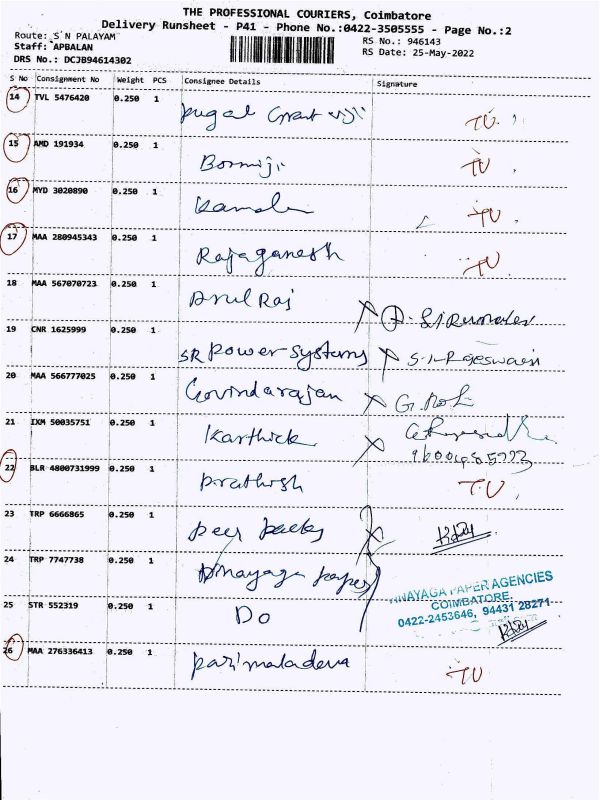 THE PROFESSIONAL COURIERS, Coimbatore
Delivery Runsheet - P41 - Phone No.:0422-3505555 - Page No.:2
Route: S N PALAYAM
RS No.: 946143
Staff: APBALAN
RS Date: 25-May-2022
DRS No.: DCJB94614302
S No Consignment No Weight PCS Consignee Details Signature
14 TVL 5476420 0.250 1 Pugal TU
15 AMD 191934 0.250 1 Bommiji TU
16 MYD 3020890 0.250 1 TU
17 MAA 280945343 0.250 1 Rajaganesh TU
18 MAA 567070723 0.250 1 Arul Raj X
19 CNR 1625999 0.250 1 SR Power Systems X
20 MAA 566777025 0.250 1 Govindarajan X
21 IXM 50035751 0.250 1 Karthick X
22 BLR 4800731999 0.250 1 Prathish TU
23 TRP 6666865 0.250 1 X
24 TRP 7747738 0.250 1 Vinayaga
25 STR 552319 0.250 1 DO
PAPER AGENCIES
COIMBATORE
0422-2453646, 94431 28271
26 MAA 276336413 0.250 1 Parimaladeva TU